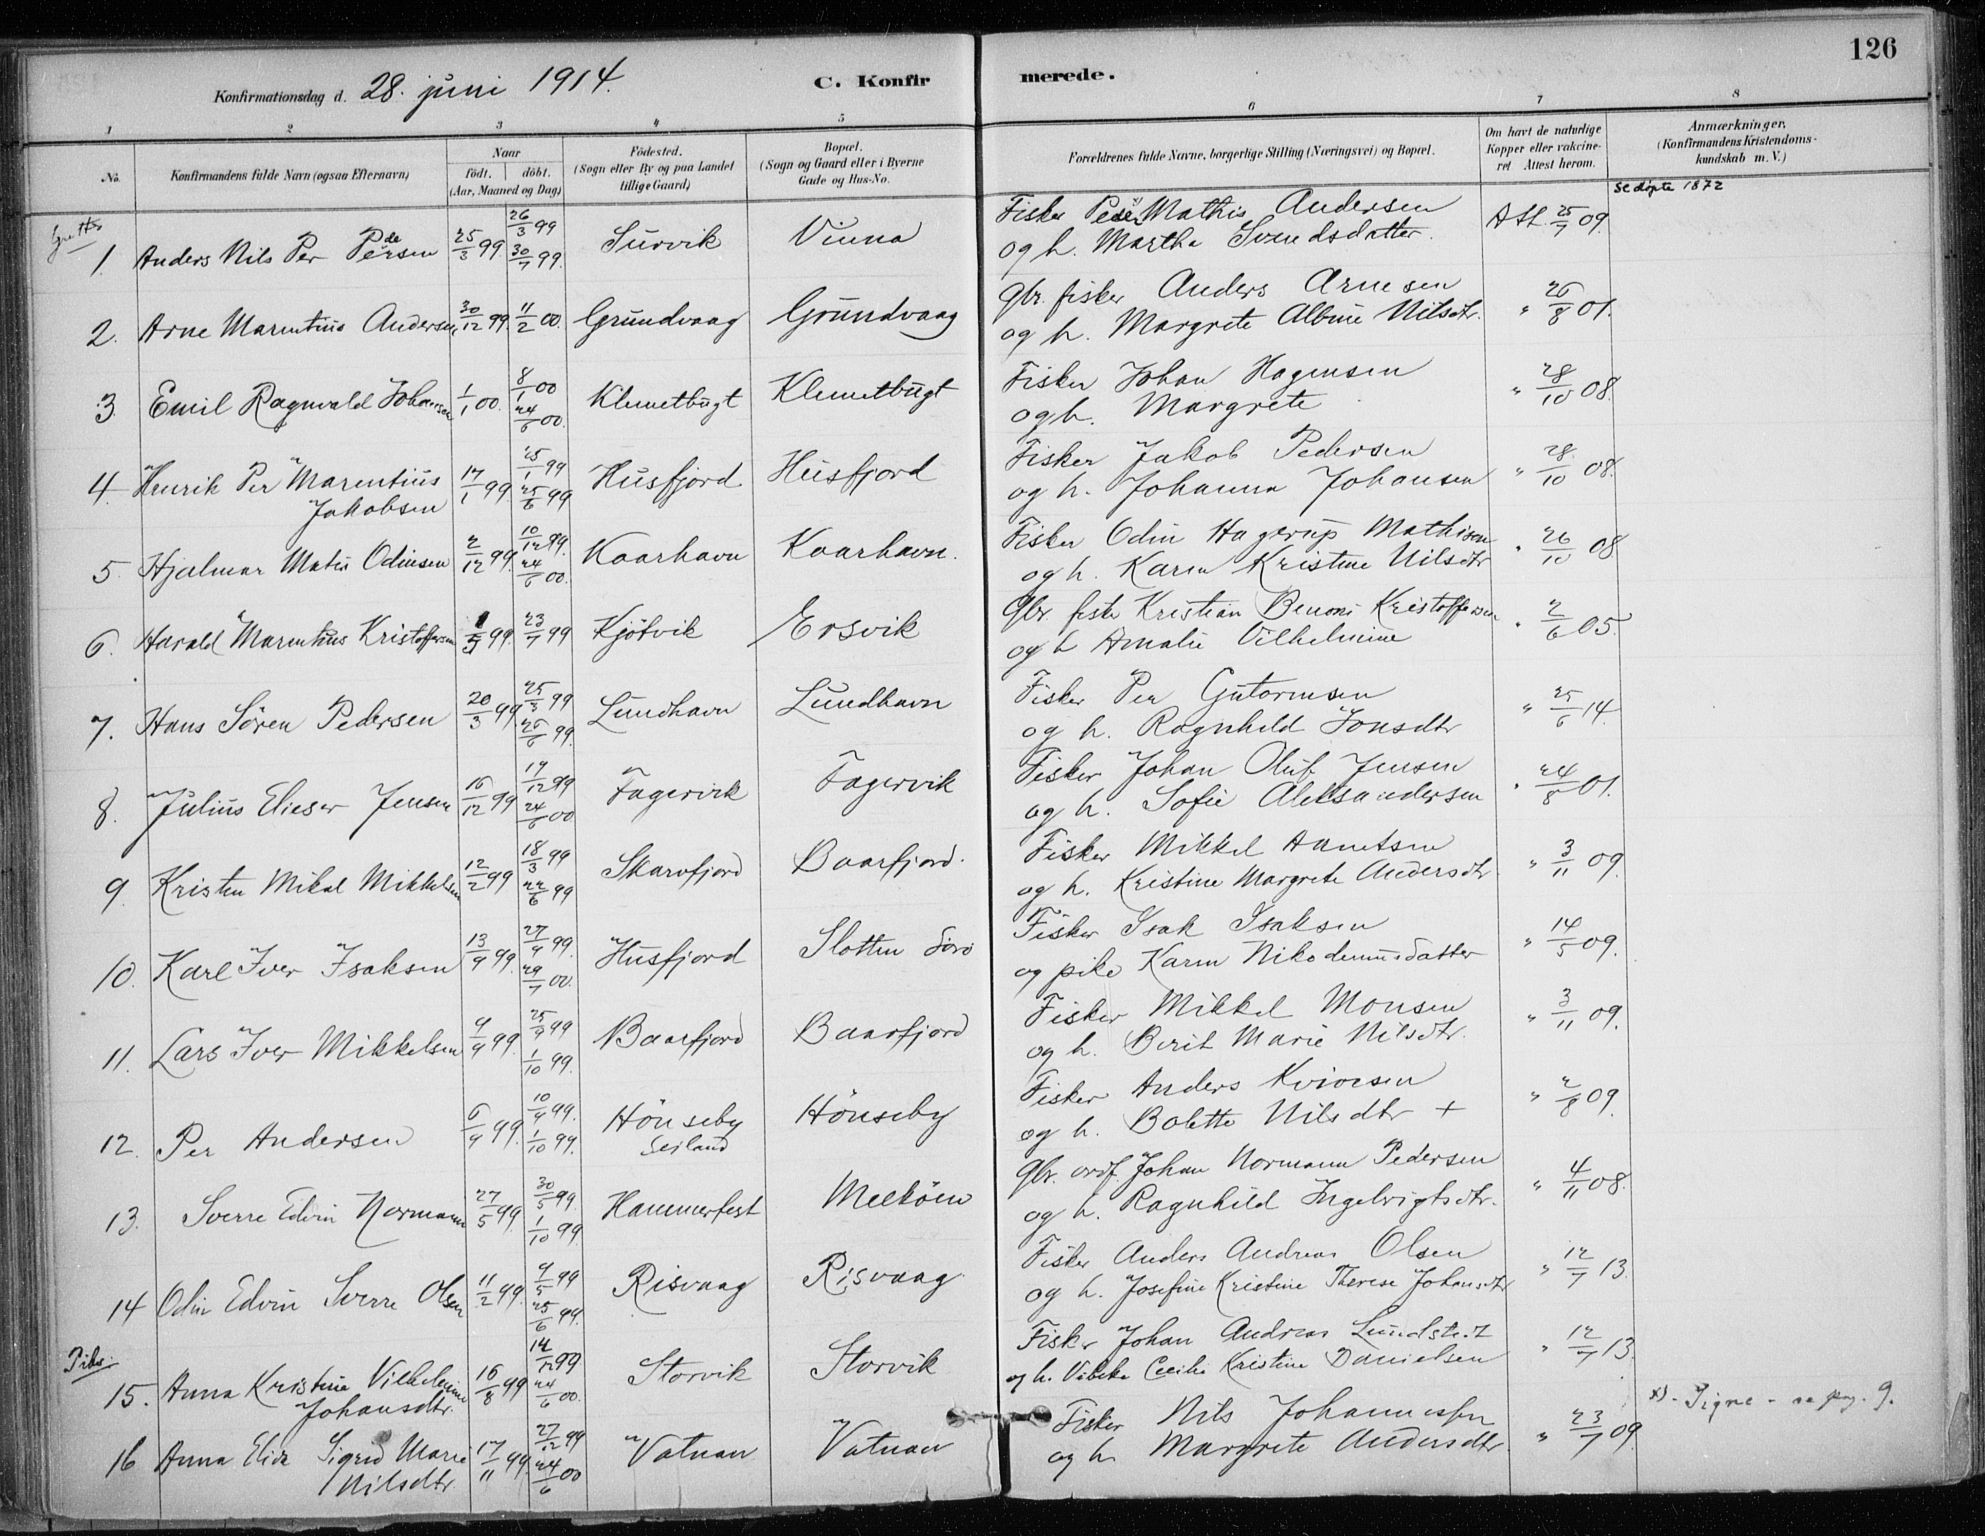 126
Konfirmationsdag d. 28. juni 1914. C. Konfirmerede.
1 2 3 4 5 6 7 8
No. Konfirmandens fulde Navn (ogsaa Efternavn) Naar født. døbt. (Aar, Maaned og Dag) Fødested. (Sogn eller By og paa Landet tillige Gaard) Bopæl. (Sogn og Gaard eller i Byerne Gade og Hus-No. Forældrenes fulde Navne, borgerlige Stilling (Næringsvei) og Bopæl. Om havt de naturlige Kopper eller vaccineret Attest herom. Anmærkninger, (Konfirmandens Kristendomskundskab m. V.)
Gutter
se døpte 1872
1. Anders Nils Per Pedersen 25/3 99. 26/3 99 30/7 99. Survik Vinna Fisker Peder Mathis Andersen
og h. Martha Svendsdatter. Att. 25/7 09.
2. Arne Marentius Andersen 30/12 99. 11/2 00. Grundvaag Grundvaag Gbr. fisker Anders Arnesen
og h. Margrete Albine Nilsdtr. " 26/8 01.
3. Emil Ragnvald Johansen 1/1 00. 8/1 00 24/6 00. Klemetbugt Klemetbugt Fisker Johan Hagensen
og h. Margrete " 28/10 08.
4 Henrik Per Marentius Jakobsen 17/1 99 25/1 99 25/6 99 Husfjord Husfjord Fisker Jakob Pedersen
og h. Johanna Johansen " 28/10 08.
5. Hjalmar Matis Odinsen 2/12 99. 10/12 99. 24/6 00. Kaarhavn Kaarhavn. Fisker Odin Hagerup Mathisen
og h. Karen Kristine Nilsdtr " 26/10 08
6. Harald Marentius Kristoffersen 99. 23/7 99 Kjøtvik Ersvik Gbr. fisker Kristian Benoni Kristoffersen
og h Amalie Vilhelmine " 2/6 05.
7. Hans Sören Pedersen 20/3 99 25/3 99 25/6 99. Lundhavn Lundhavn Fisker Per Gutormsen
og h. Ragnhild Jonsdtr " 25/6 14.
8. Julius Elieser Jensen 16/12 99 17/12 99 24/6 00 Fagervik Fagervik Fisker Johan Oluf Jensen
og h. Sofie Aleksandersen " 24/8 01.
9. Kristen Mikal Mikkelsen 12/2 99 18/3 99 22/6 99 Skarvfjord Baarfjord. Fisker Mikkel
og h. Kristine Margrete Andersdtr. " 3/11 09.
10. Karl Iver Isaksen 13/9 99. 27/9 99. 29/7 00. Husfjord Slotten Fisker Isak Isaksen
og pike Karen Nikodemusdatter " 14/5 09.
11. Lars Iver Mikkelsen 4/9 99. 25/9 99 1/10 99. Baarfjord Baarfjord Fisker Mikkel Monsen
og h. Berit Marie Nilsdtr. " 3/11 09.
12. Per Andersen 6/9 99. 10/9 99. 1/10 99. Hönseby Seiland Hönseby Fisker Anders
og h. Bolette Nilsdtr + " 2/8 09.
13. Sverre Edvin Normann 27/5 99. 30/5 99. 1/10 99 Hammerfest Melköen Gbr. ordf. Johan Normann Pedersen
og h. Ragnhild Ingebrigtsdtr. " 4/11 08.
14 Odin Edvin Sverre Olsen 11/2 99. 9/5 99 25/6 99. Risvaag Risvaag Fisker Anders Andreas Olsen
og h. Josefine Kristine Therese Johansdtr " 12/7 13.
Piker.
15. Anna Kristine Vilhelmine Johansdtr. 16/8 99 14/12 99 24/6 00. Storvik Storvik Fisker Johan Andreas Lundstedt
og h. Vibeke Cecilie Kristine Danielsen " 12/7 13.
16 Anna Elida Sigrid Marie Nilsdtr 17/11 99. 27/12 99 24/6 00 Vatnan Vatnan Fisker Nils Johannessen
og h. Margrete Andersdtr " 23/7 09. x) - Signe - se pag. 9.